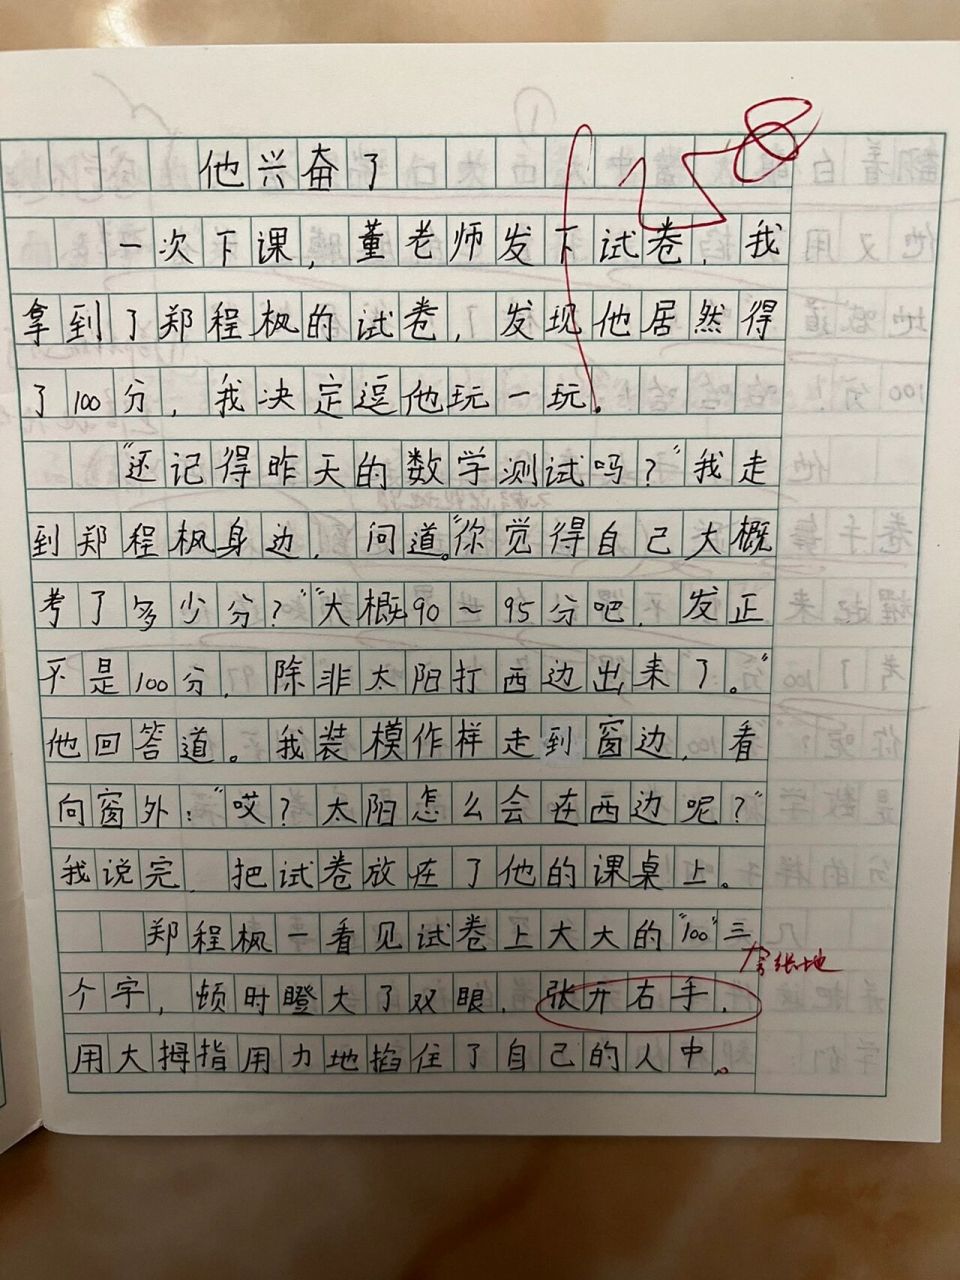 他兴奋了
一次下课，董老师发下试卷，我
拿到了郑程枫的试卷，发现他居然得
了100分，我决定逗他玩一玩。
“还记得昨天的数学测试吗？”我走
到郑程枫身边，问道。“你觉得自己大概
考了多少分？”“大概90～95分吧，发正
不是100分，除非太阳打西边出来了。”
他回答道。我装模作样走到窗边，看
向窗外：“哎？太阳怎么会在西边呢？”
我说完，把试卷放在了他的课桌上。
郑程枫一看见试卷上大大的“100”三
个字，顿时瞪大了双眼，张开右手，
用大拇指用力地掐住了自己的人中。